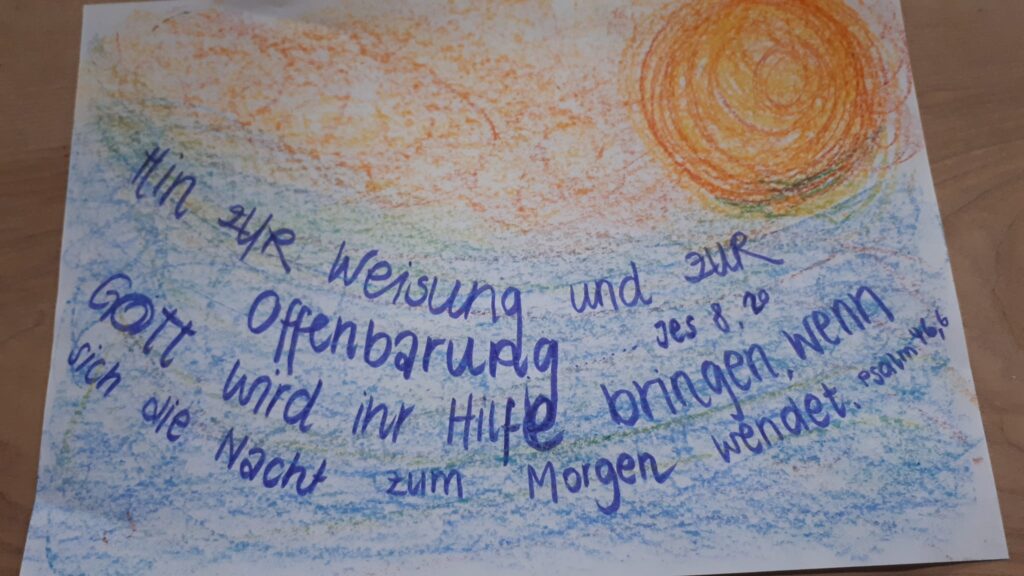 Hin zur Weisung und zur
Offenbarung Jes 8, 20
Gott wird ihr Hilfe bringen, wenn
sich die Nacht zum Morgen wendet. Psalm 46,6